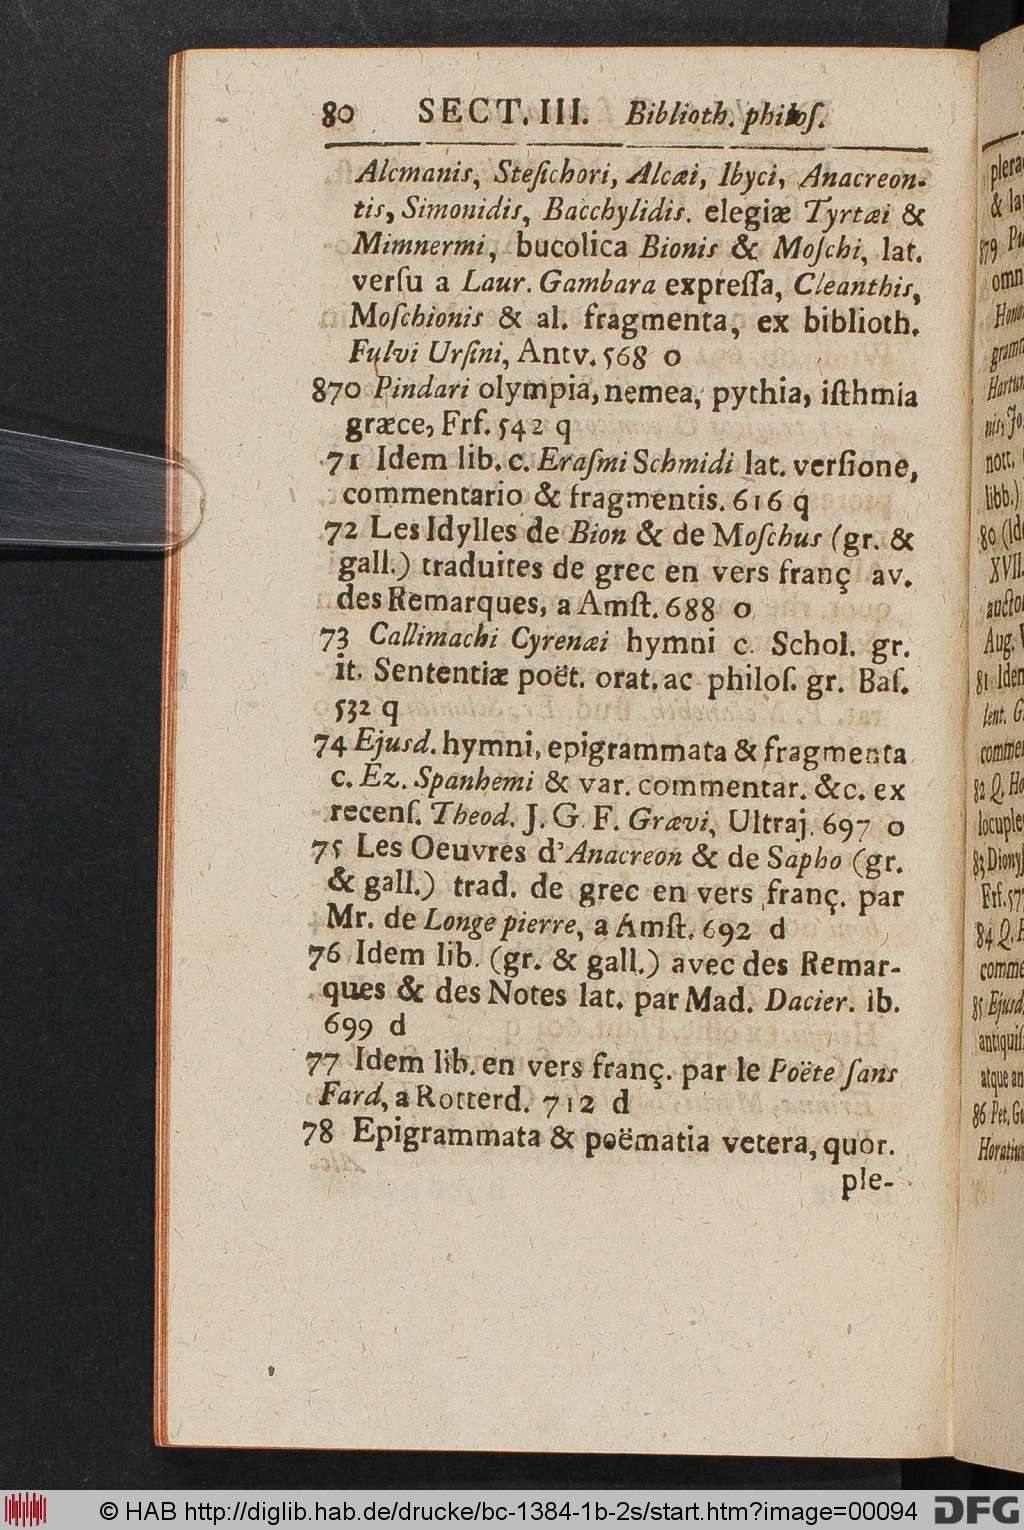 80 SECT. III. Biblioth. philoſ.
Alcmanis, Steſichori, Alcæi, Ibyci, Anacreon-
tis, Simonidis, Bacchylidis. elegiæ Tyrtæi &
Mimnermi, bucolica Bionis & Moſchi, lat.
verſu a Laur. Gambara expreſſa, Cleanthis,
Moſchionis & al. fragmenta, ex biblioth.
Fulvi Urſini, Antv. 568 o
870 Pindari olympia, nemea, pythia, iſthmia
græce, Frf. 542 q
71 Idem lib. c. Eraſmi Schmidi lat. verſione,
commentario & fragmentis. 616 q
72 Les Idylles de Bion & de Moſchus (gr. &
gall.) traduites de grec en vers franç av.
des Remarques, a Amſt. 688 o
73 Callimachi Cyrenæi hymni c. Schol. gr.
it. Sententiæ poët. orat. ac philoſ. gr. Baſ.
532 q
74 Ejusd. hymni, epigrammata & fragmenta
c. Ez. Spanhemi & var. commentar. &c. ex
recenſ. Theod. J. G F. Grævi, Ultraj. 697 o
75 Les Oeuvres d'Anacreon & de Sapho (gr.
& gall.) trad. de grec en vers franç. par
Mr. de Longe pierre, a Amſt. 692 d
76 Idem lib. (gr. & gall.) avec des Remar-
ques & des Notes lat. par Mad. Dacier. ib.
699 d
77 Idem lib. en vers franç. par le Poëte ſans
Fard, a Rotterd. 712 d
78 Epigrammata & poëmatia vetera, quor.
ple-
plera
& la
879
omn
Hono
gramm
nis, Jo
nott.
libb.)
80 (Ide
XVII.
auctor
Aug.
81 Iden
lent. G
comme
82 Q. Ho
locuple
83 Dionyſ
Frf. 57
84 Q. H
comme
85 Ejusd
antiquiſ
atque an
86 Pet. Gu
Horatiu
© HAB http://diglib.hab.de/drucke/bc-1384-1b-2s/start.htm?image=00094
DFG